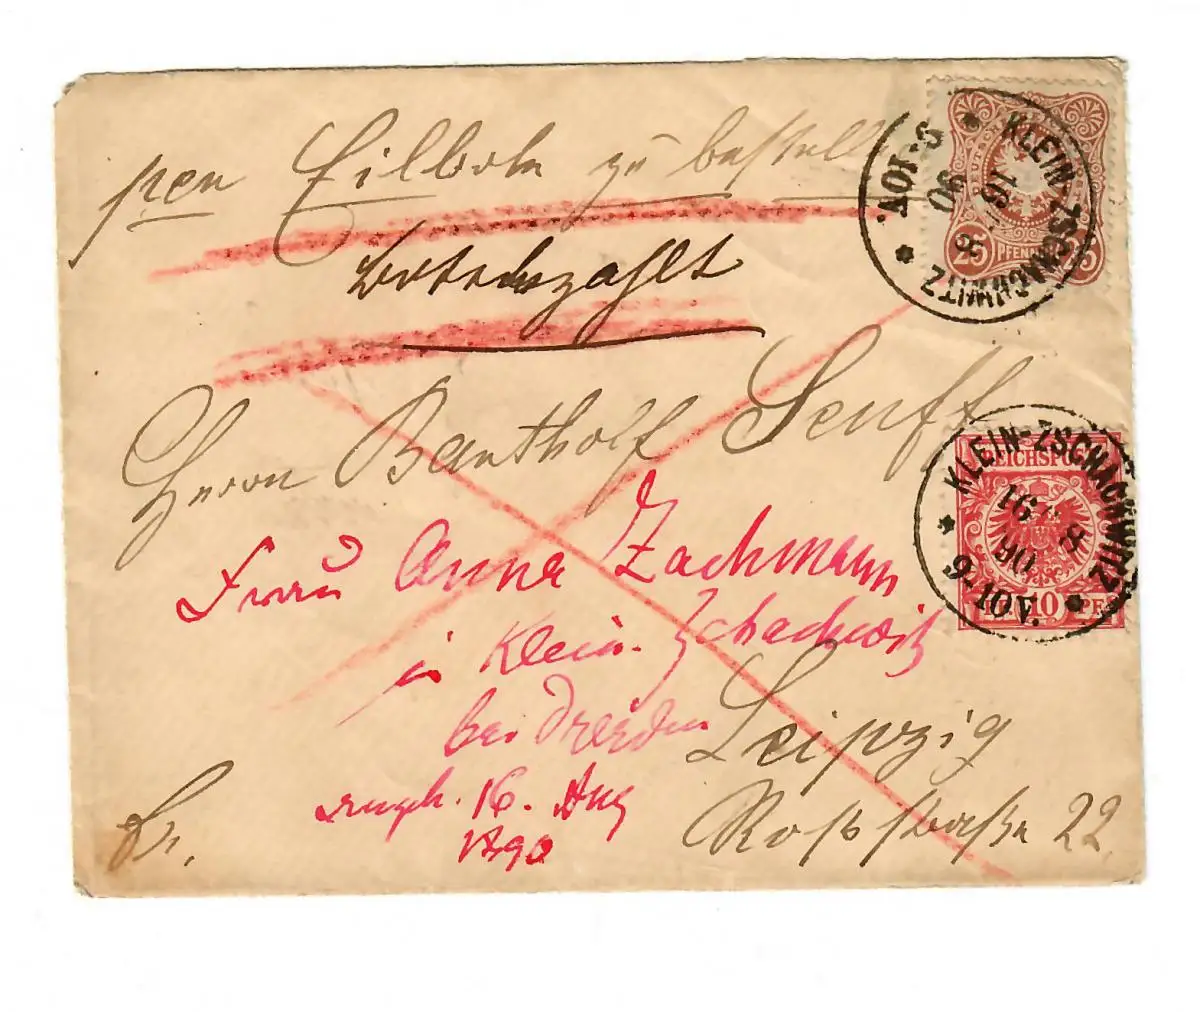 per Eilbote zu bestell
Bote bezahlt
Herrn Barthold Senff
Frau Anna Zachmann
in Klein-Zschachwitz
bei Dresden
Leipzig
16. Aug
1890
Roßstraße 22.
Fr.
25 PFENNI
KLEIN-ZSCHACHWITZ
16 8
90
9-10V.
REICHSPOST
10 PF
KLEIN-ZSCHACHWITZ
16 8
90
9-10V.